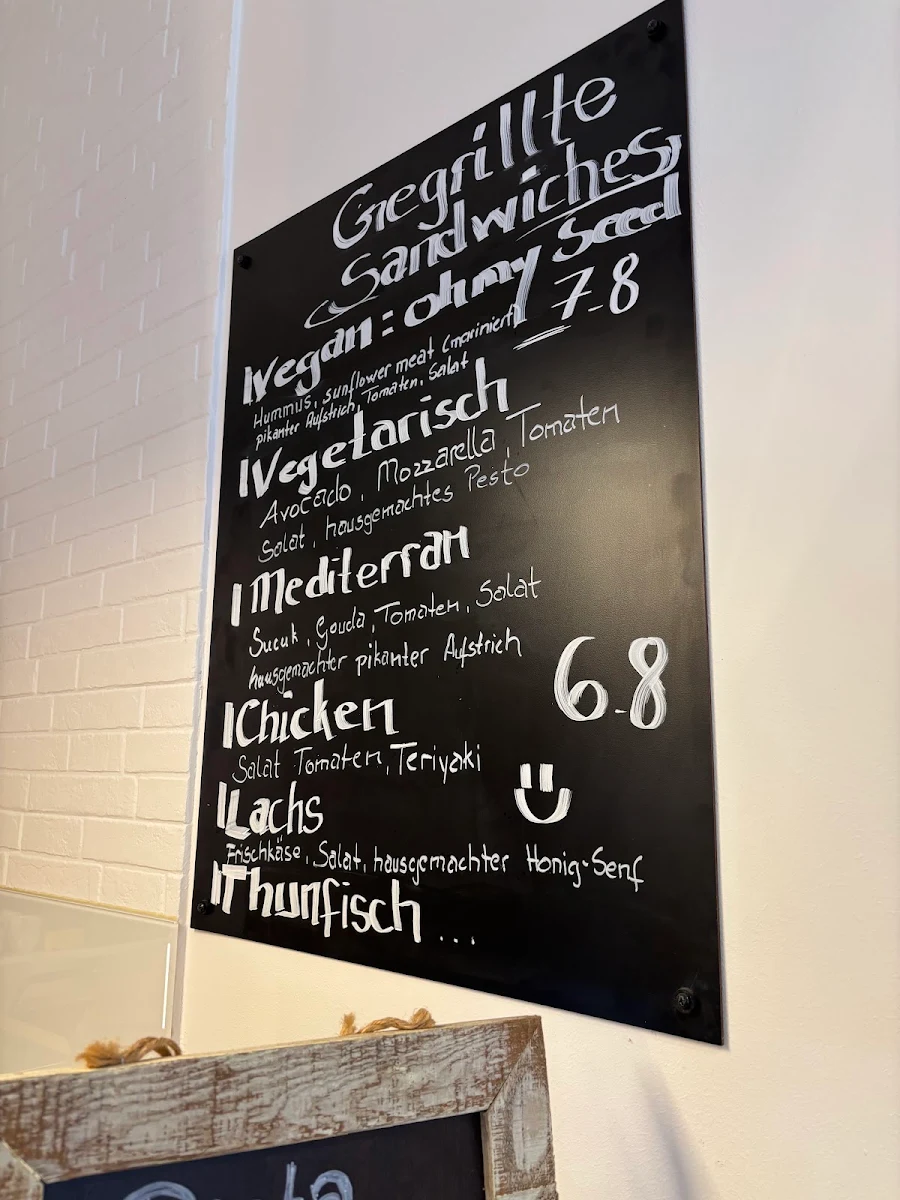 Gegrillte
Sandwiches
Vegan: oh my Seed
7.8
Hummus, sunflower meat (mariniert)
pikanter Aufstrich, Tomaten, Salat
Vegetarisch
Avocado, Mozzarella, Tomaten
Salat, hausgemachtes Pesto
Mediterran
Sucuk, Gouda, Tomaten, Salat
hausgemachter pikanter Aufstrich
6.8
Chicken
Salat Tomaten, Teriyaki
Lachs
Frischkäse, Salat, hausgemachter Honig-Senf
Thunfisch ...